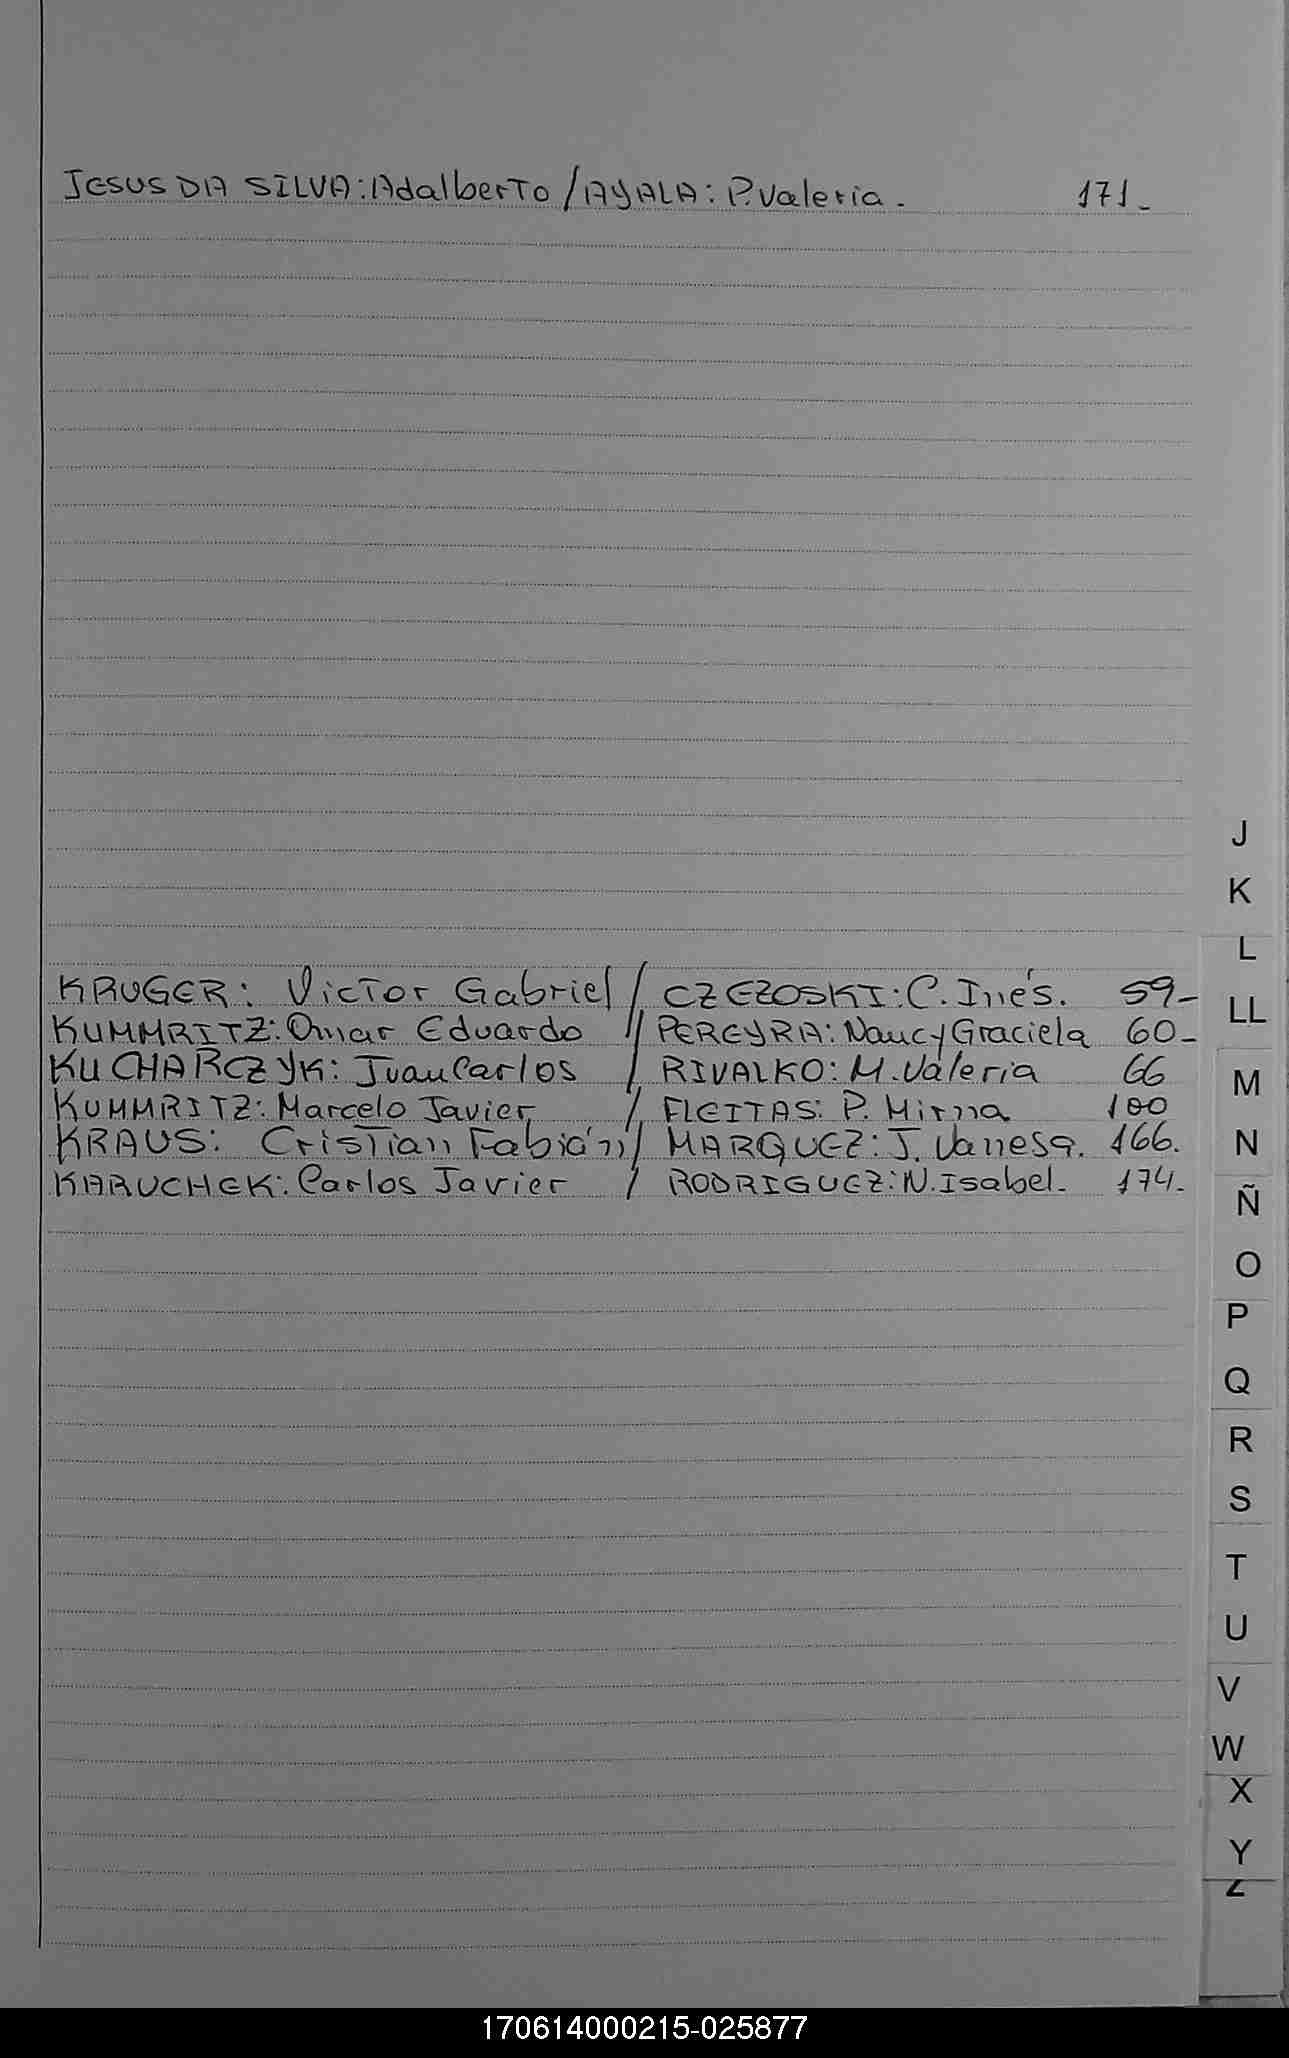 JESUS DA SILVA: Adalberto / AYALA: P. Valeria. 171_
J
K
L
KRUGER: Victor Gabriel / CZEZOSKI: C. Inés. 59_
LL
KUMMRITZ: Omar Eduardo // PEREYRA: Nancy Graciela 60_
KUCHARCZYK: Juan Carlos / RIVALKO: M. Valeria 66
M
KUMMRITZ: Marcelo Javier / FLEITAS: P. Mirna 100
KRAUS: Cristian Fabián / MARQUEZ: J. Vanesa. 166.
N
KARUCHEK: Carlos Javier / RODRIGUEZ: N. Isabel. 174.
Ñ
O
P
Q
R
S
T
U
V
W
X
Y
Z
170614000215-025877